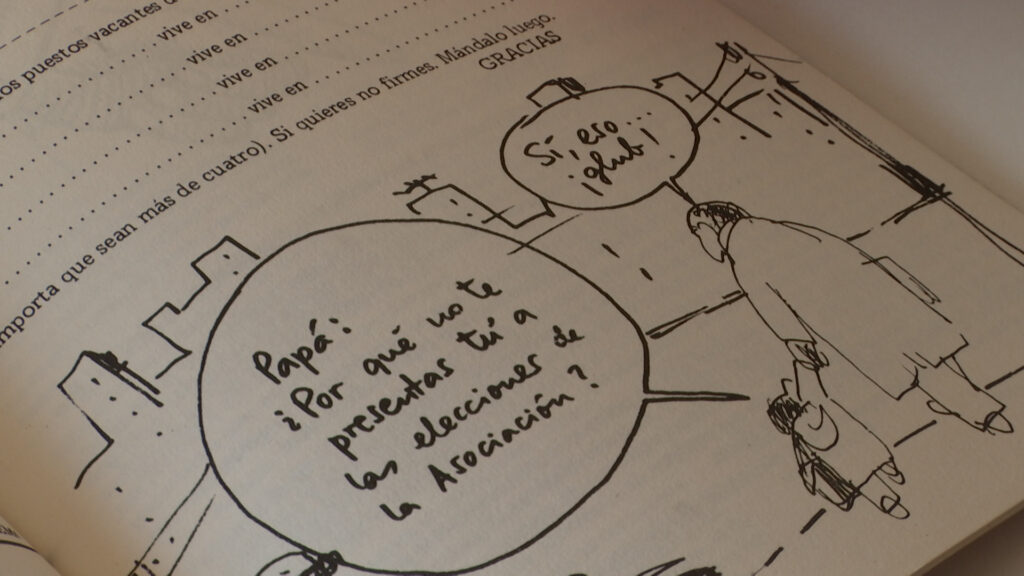 os puestos vacantes
vive en
vive en
vive en
vive en
importa que sean más de cuatro). Si quieres no firmes. Mándalo luego.
GRACIAS
Sí, eso...
¡glub!
Papá:
¿Por qué no te
presentas tú a
las elecciones de
la Asociación?